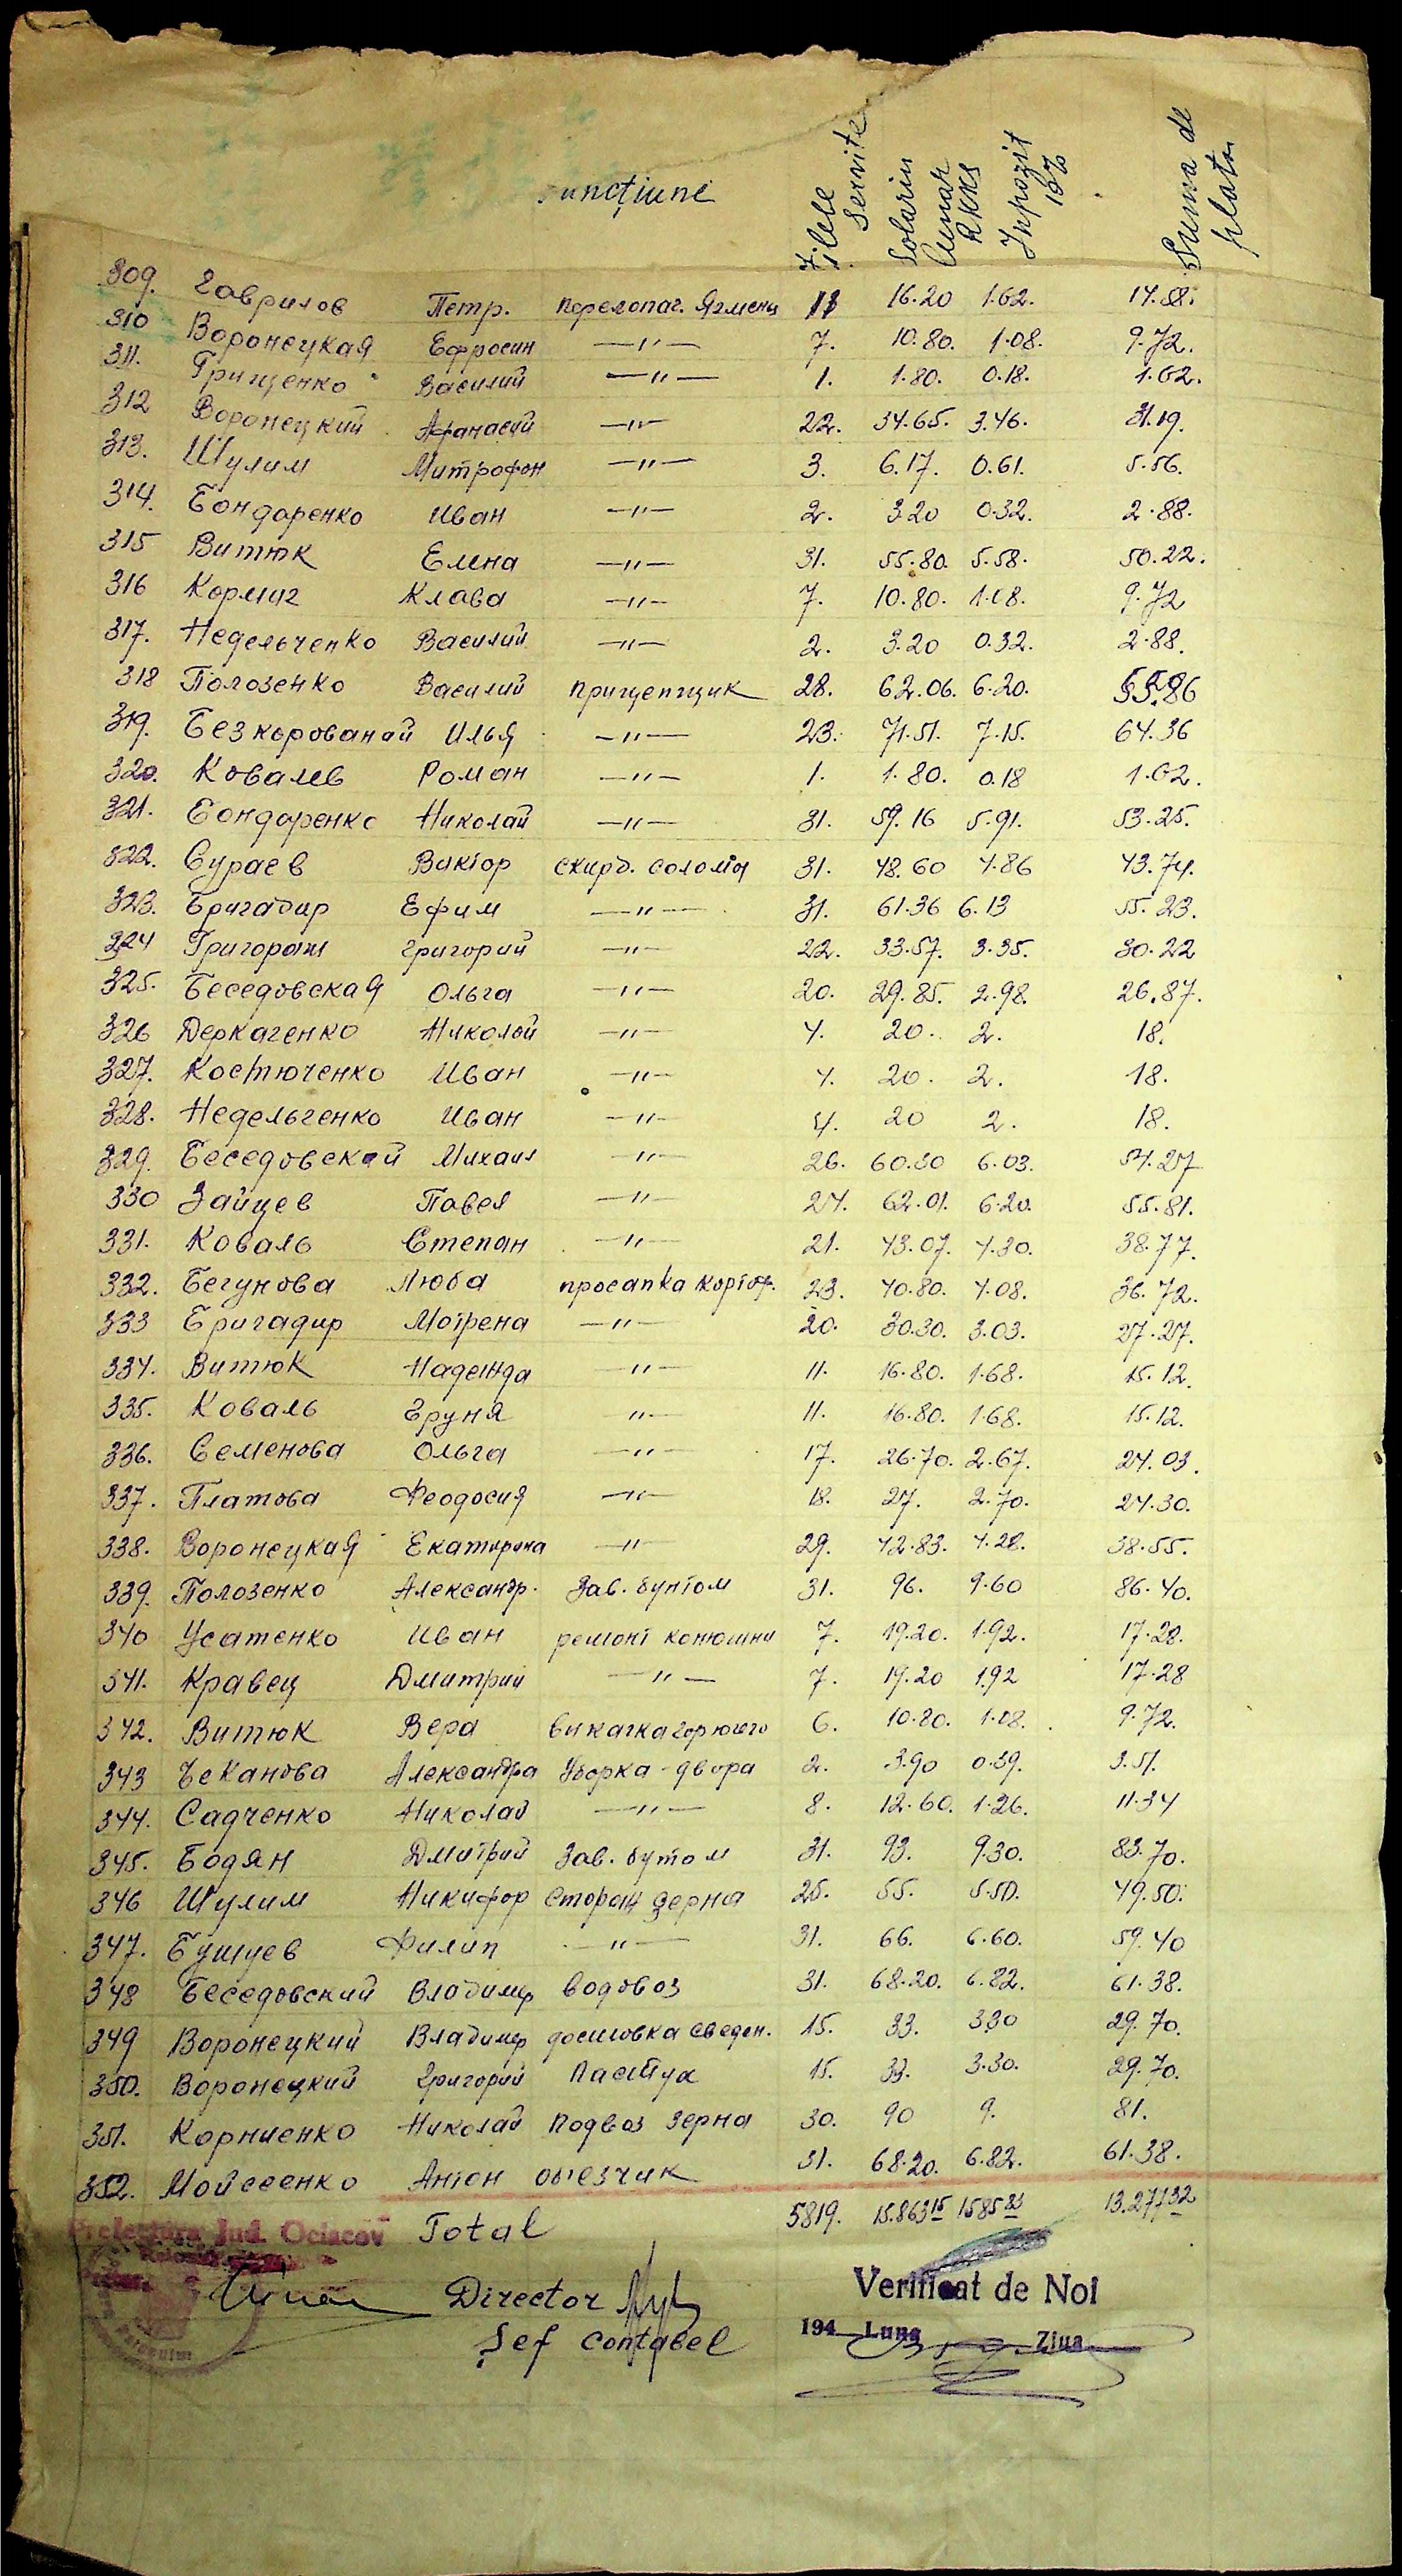 Funcțiune Zile Servite Solariu lunar RKKS Inpozit 10% Suma de plata
309. Гаврилов Петр. перелопач. Ячмень 11 16.20 1.62. 14.58.
310 Воронецкая Ефросин —"— 7. 10.80. 1.08. 9.72.
311. Грищенко Василий —"— 1. 1.80. 0.18. 1.62.
312 Воронецкий Афанасий —"— 22. 34.65. 3.46. 31.19.
313. Шулим Митрофон —"— 3. 6.17. 0.61. 5.56.
314. Бондаренко Иван —"— 2. 3.20 0.32. 2.88.
315 Витюк Елена —"— 31. 55.80. 5.58. 50.22.
316 Кормиг Клава —"— 7. 10.80. 1.08. 9.72
317. Недельченко Василий —"— 2. 3.20 0.32. 2.88.
318 Полозенко Василий прицепщик 28. 62.06. 6.20. 55.86
319. Безкорованай Илья —"— 23. 71.51. 7.15. 64.36
320. Ковалев Роман —"— 1. 1.80. 0.18 1.62.
321. Бондаренко Николай —"— 31. 59.16 5.91. 53.25.
322. Сураев Виктор скирд. соломы 31. 48.60 4.86 43.74.
323. Бригадир Ефим —"— 31. 61.36 6.13 55.23.
324 Григораш Григорий —"— 22. 33.57. 3.35. 30.22
325. Беседовская Ольга —"— 20. 29.85. 2.98. 26.87.
326 Деркаченко Николай —"— 4. 20. 2. 18.
327. Костюченко Иван —"— 4. 20. 2. 18.
328. Недельченко Иван —"— 4. 20 2. 18.
329. Беседовский Михаил —"— 26. 60.30 6.03. 54.27
330 Зайцев Павел —"— 24. 62.01. 6.20. 55.81.
331. Коваль Степан —"— 21. 43.07. 4.30. 38.77.
332. Бегунова Люба просапка картоф. 23. 40.80. 4.08. 36.72.
333 Бригадир Мотрена —"— 20. 30.30. 3.03. 27.27.
334. Витюк Надежда —"— 11. 16.80. 1.68. 15.12.
335. Коваль Груня —"— 11. 16.80. 1.68. 15.12.
336. Семенова Ольга —"— 17. 26.70. 2.67. 24.03.
337. Платова Феодосия —"— 18. 27. 2.70. 24.30.
338. Воронецкая Екатирина —"— 29. 42.83. 4.28. 38.55.
339. Полозенко Александр. Зав. бунтом 31. 96. 9.60 86.40.
340 Усатенко Иван ремонт конюшни 7. 19.20. 1.92. 17.28.
341. Кравец Дмитрий —"— 7. 19.20 1.92 17.28
342. Витюк Вера викачка горючего 6. 10.80. 1.08. 9.72.
343 Чеканова Александра Уборка двора 2. 3.90 0.39. 3.51.
344. Садченко Николай —"— 8. 12.60. 1.26. 11.34
345. Бодян Дмитрий Зав. бутом 31. 93. 9.30. 83.70.
346 Шулим Никифор Сторож зерна 25. 55. 5.50. 49.50.
347. Бушуев Филип —"— 31. 66. 6.60. 59.40
348 Беседовский Владимир водовоз 31. 68.20. 6.82. 61.38.
349 Воронецкий Владимир досиловка сведен. 15. 33. 3.30 29.70.
350. Воронецкий Григорий Пастух 15. 33. 3.30. 29.70.
351. Корниенко Николай Подвоз зерна 30. 90 9. 81.
352. Мойсеенко Антон объезчик 31. 68.20. 6.82. 61.38.
Prefectura Jud. Ociacov Total 5819. 15.863 15 1585 83 13.277 32
Director
Verificat de Noi
Șef Contabel
194 Luna Ziua